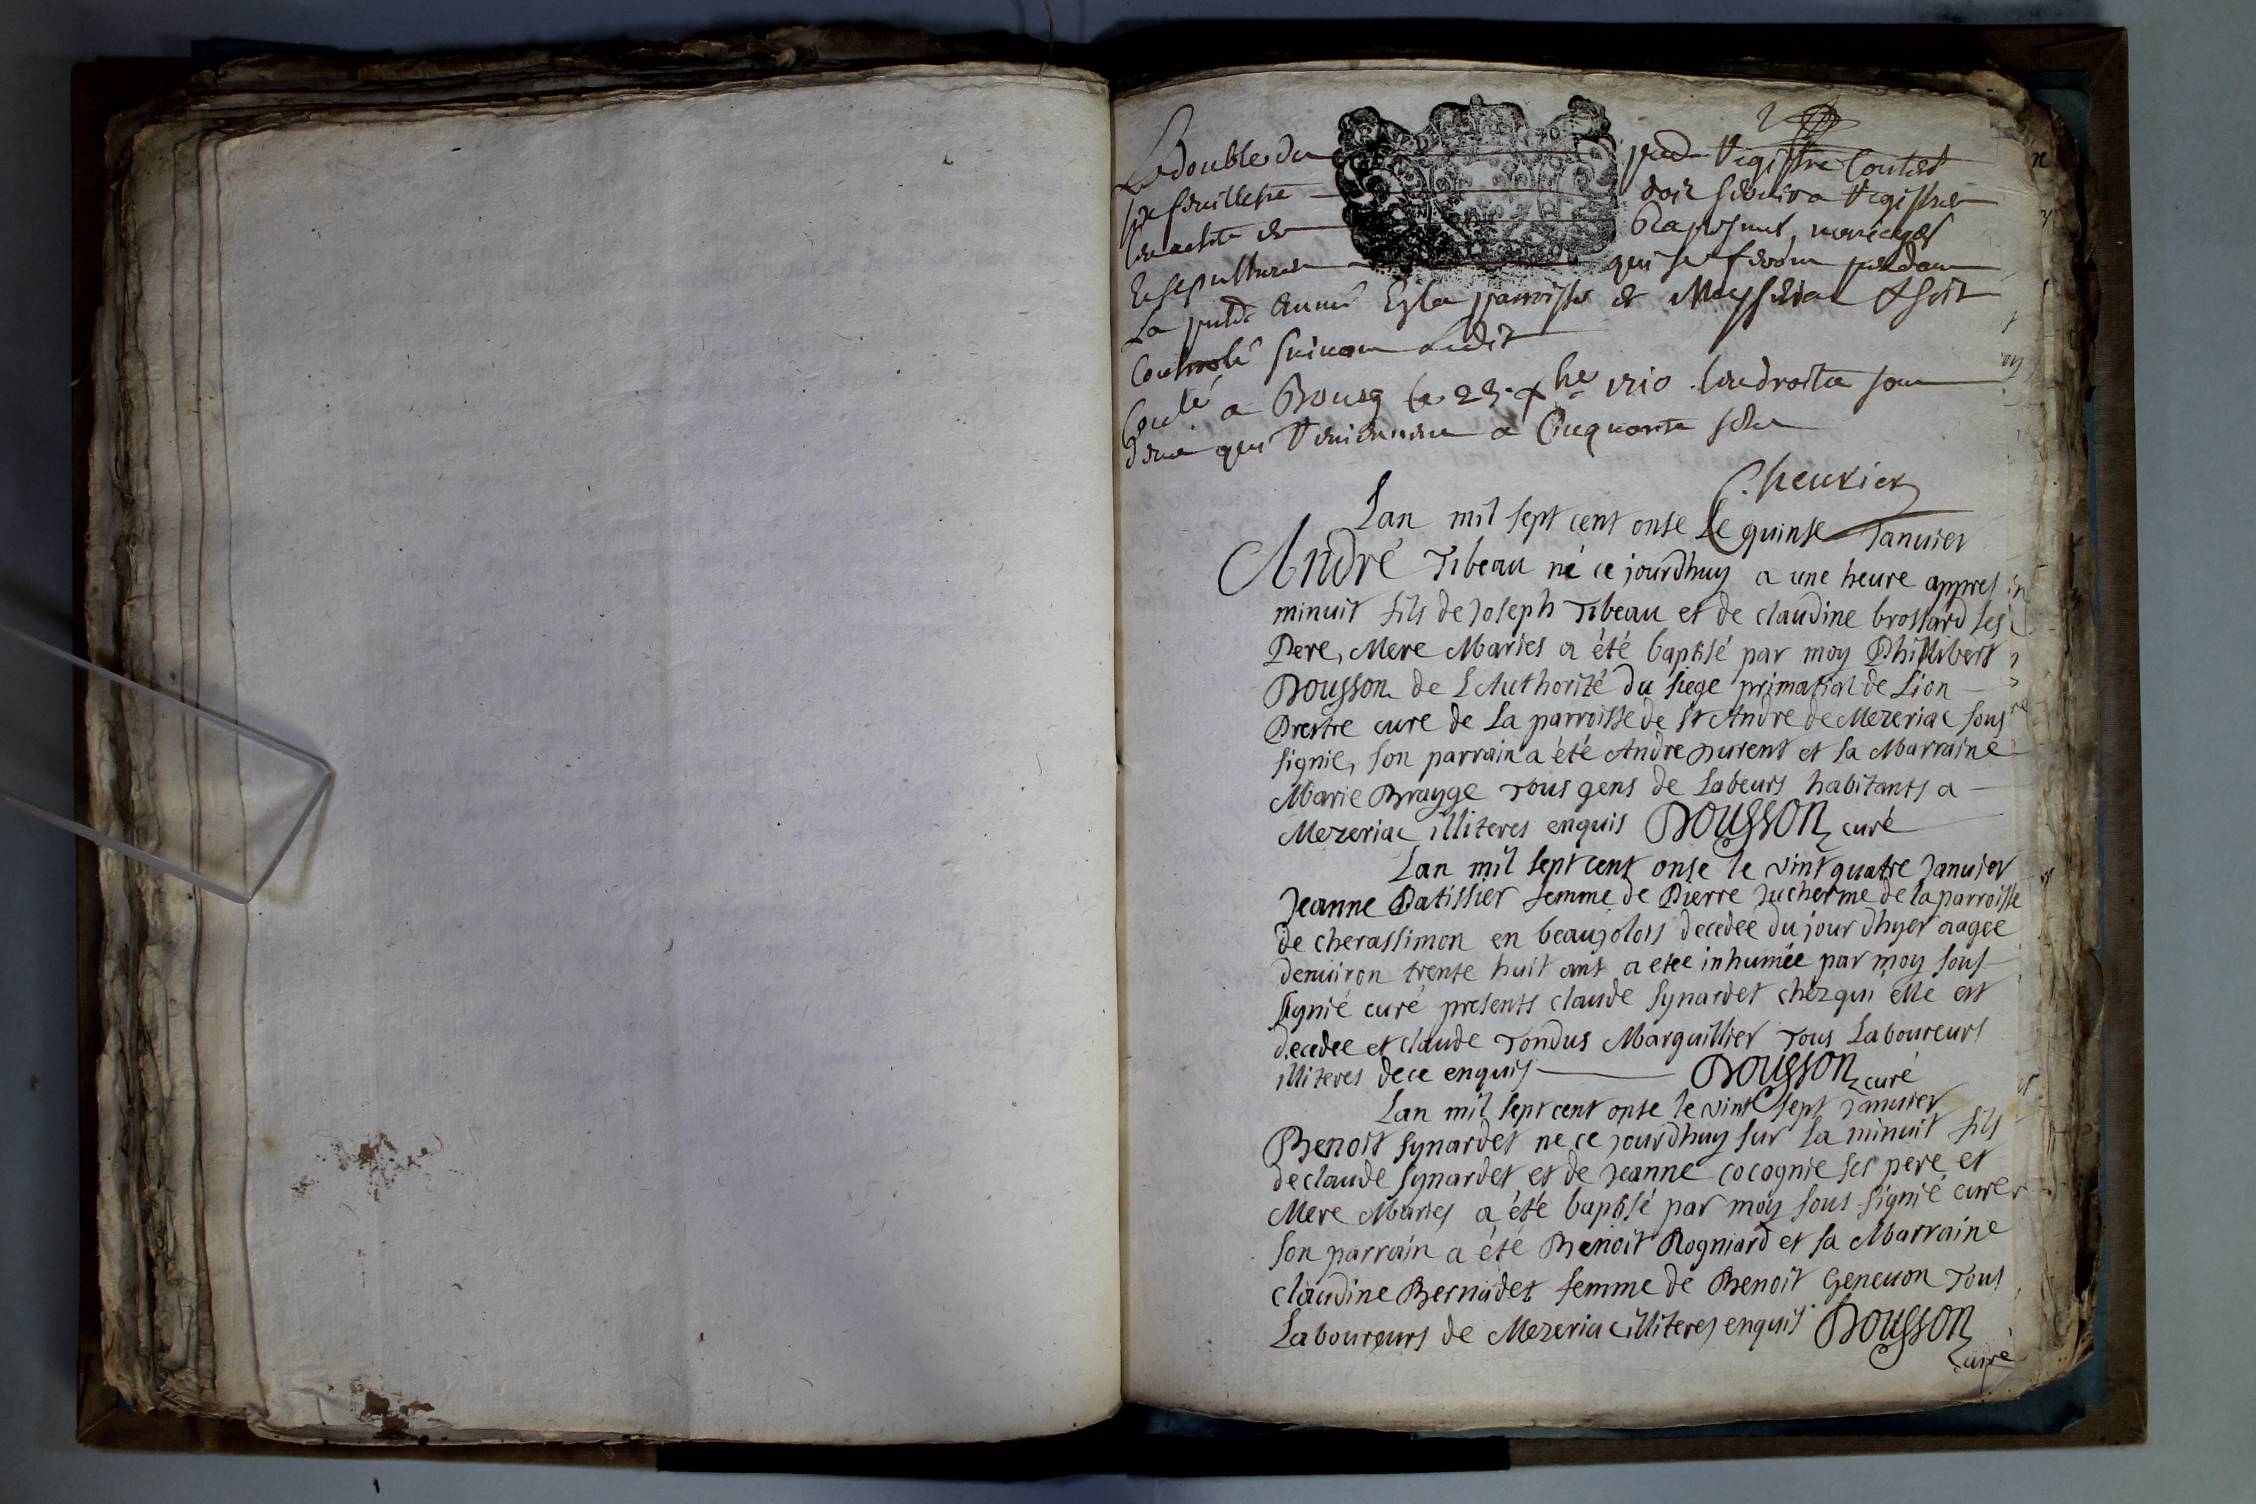 Le double du pnt Registre Contet
six feuillets doit servir a Registrer
les actes de Baptesmes, mariages
et sepultures qui se feront pendant
La pnte année En la parroisse de Meysseria & soit
Controlé suivant Ledit
Coulé a Bourg le 23 xbre 1710 les droits sont
deux qui Reviennent a Cinquante sols
Cheurier
Lan mil sept cent onse Le quinse Januier
André Tibeau né ce jourdhuy a une heure appres
minuit fils de Joseph Tibeau et de claudine brossard ses
Pere, Mere Maries a été baptisé par moy Philibert
Dousson de L'Authorité du siege primatial de Lion
Prestre curé de La parroisse de St André de Mezeriac sous
signie, son parrain a été Andre purent et sa Marraine
Marie Brayge Tous gens de Labeurs habitants a
Mezeriac illiteres enquis Dousson curé
Lan mil sept cent onse le vint quatre Januier
Jeanne Patissier femme de Pierre Jucherme de la parroisse
de cherassimon en beaujolois decedée du jour dhyer aagee
denuiron trente huit ans a etee inhumée par moy sous
signié curé presents claude Synardet chez qui elle est
decedee et claude Tondus Marguillier Tous Laboureurs
illiteres de ce enquis Dousson curé
Lan mil sept cent onse le vint sept Januier
Benoit Synardet ne ce jourdhuy sur la minuit fils
de claude Synardet et de Jeanne cocognie ses pere et
Mere Maries a été baptisé par moy sous signié curé
son parrain a été Benoit Rogniard et sa Marraine
claudine Bernadet femme de Benoit Geneuon Tous
Laboureurs de Mezeriac illiteres enquis Dousson
curé